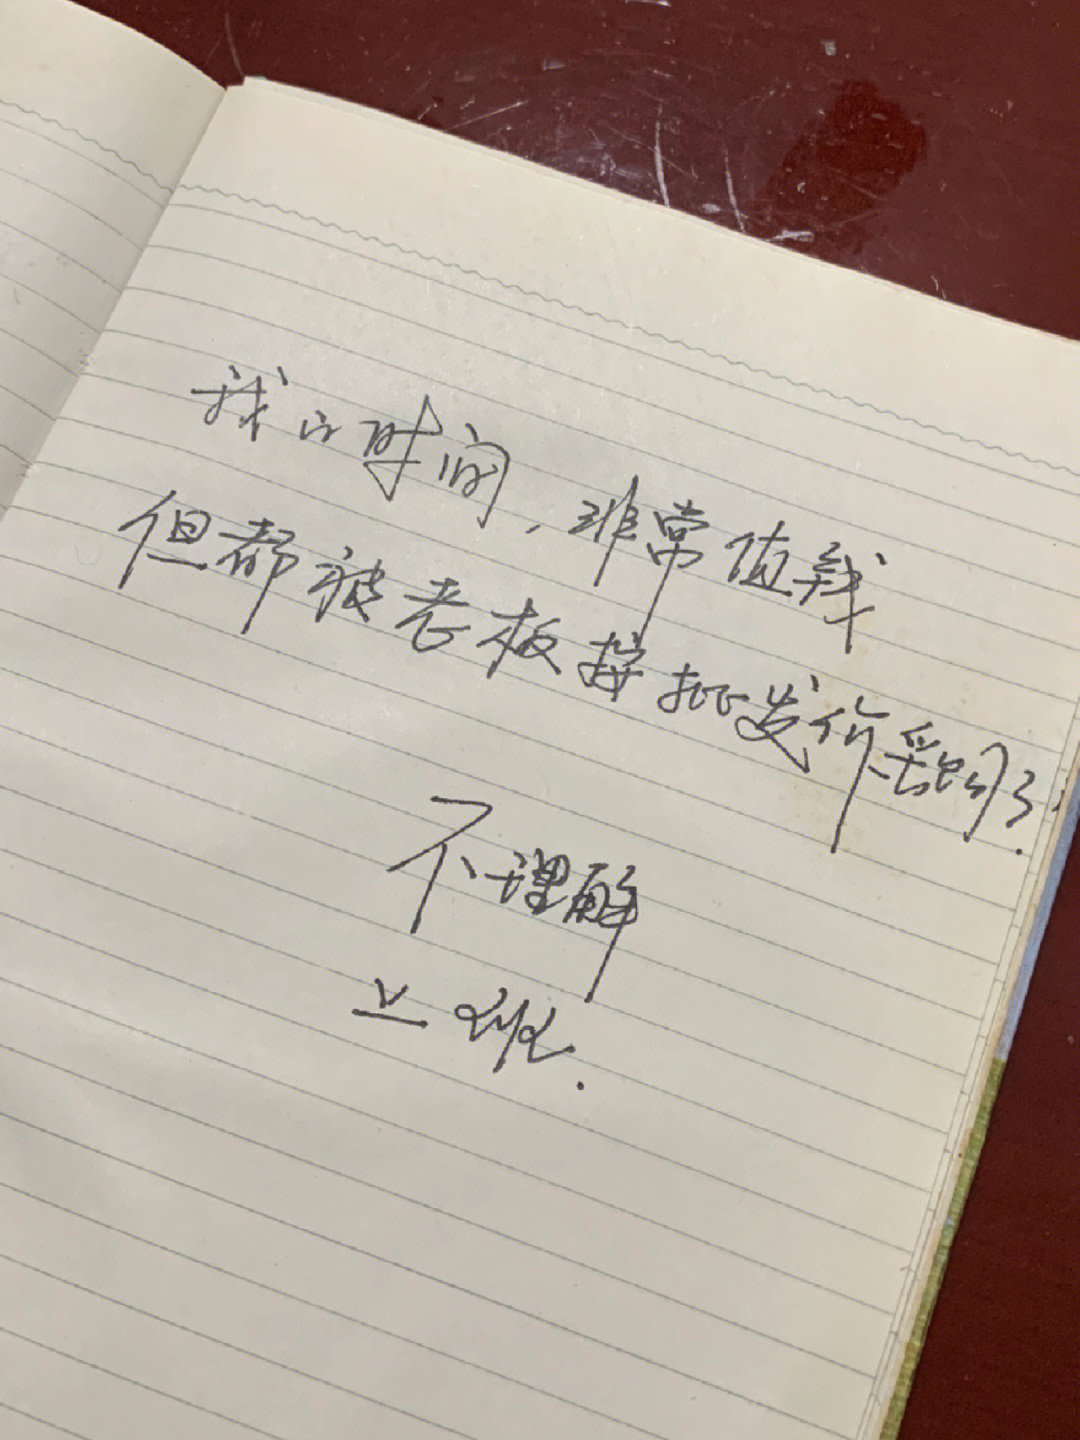 我的时间，非常值钱
但都被老板按批发价采购了.
不理解
上班.